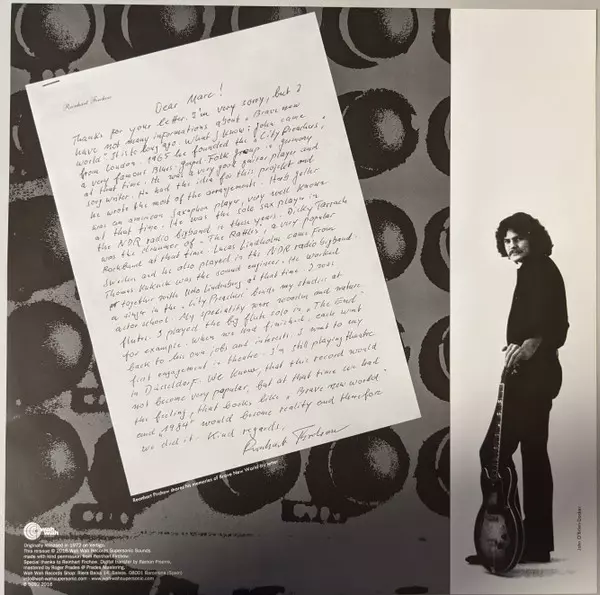 Reinhart Firchow
Dear Marc!
Thanks for your letter. I'm very sorry, but I
have not many informations about "Brave new
world". It is to long ago. What I know: John came
from London. 1965 he founded the "City Preachers",
a very famous Blues, Gospel, Folk group in Germany
at that time. He was a very good guitar player and
song writer. He had the idea for this project and
he wrote the most of the arrangements. Herb Geller
was an american Saxophon player, very well known
at that time. He was the solo sax player in
the NDR radio bigband in these years. Dicky Tarrach
was the drummer of "The Rattles", a very popular
Rockband at that time. Lucas Lindholm came from
Sweden and he also played in the NDR radio bigband.
Thomas Kukuck was the sound engineer. He worked
together with Udo Lindenberg at that time. I was
a singer in the "City Preachers" beside my studies at
actor school. My speciality were wooden and nature
flutes. I played the big flute solo in "The End"
for example. When we had finished, each went
back to his own jobs and interests. I went to my
first engagement in theatre. I'm still playing theatre
in Düsseldorf. We knew, that this record would
not become very popular, but at that time we had
the feeling, that books like "Brave new world"
and "1984" would become reality and therefore
we did it. Kind regards,
Reinhart Firchow
Reinhart Firchow shares his memories of Brave New World his letter
John O'Brien-Docker
wah wah
Originally released in 1972 on Vertigo.
This reissue © 2016 Wah Wah Records Supersonic Sounds
made with kind permission from Reinhart Firchow.
Special thanks to Reinhart Firchow. Digital transfer by
mastered by Roger Prades @ Prades Mastering.
Wah Wah Records Shop: Riera Baixa 14, Bajos. 08001 Barcelona (Spain)
info@wah-wahsupersonic.com - www.wah-wahsupersonic.com
2016